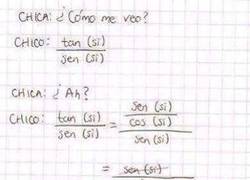 CHICA: ¿Cómo me veo?
CHICO: tan (si)
sen (si)
CHICA: ¿Ah?
CHICO: tan (si) / sen (si) = sen (si) / cos (si) / sen (si)
= sen (si)